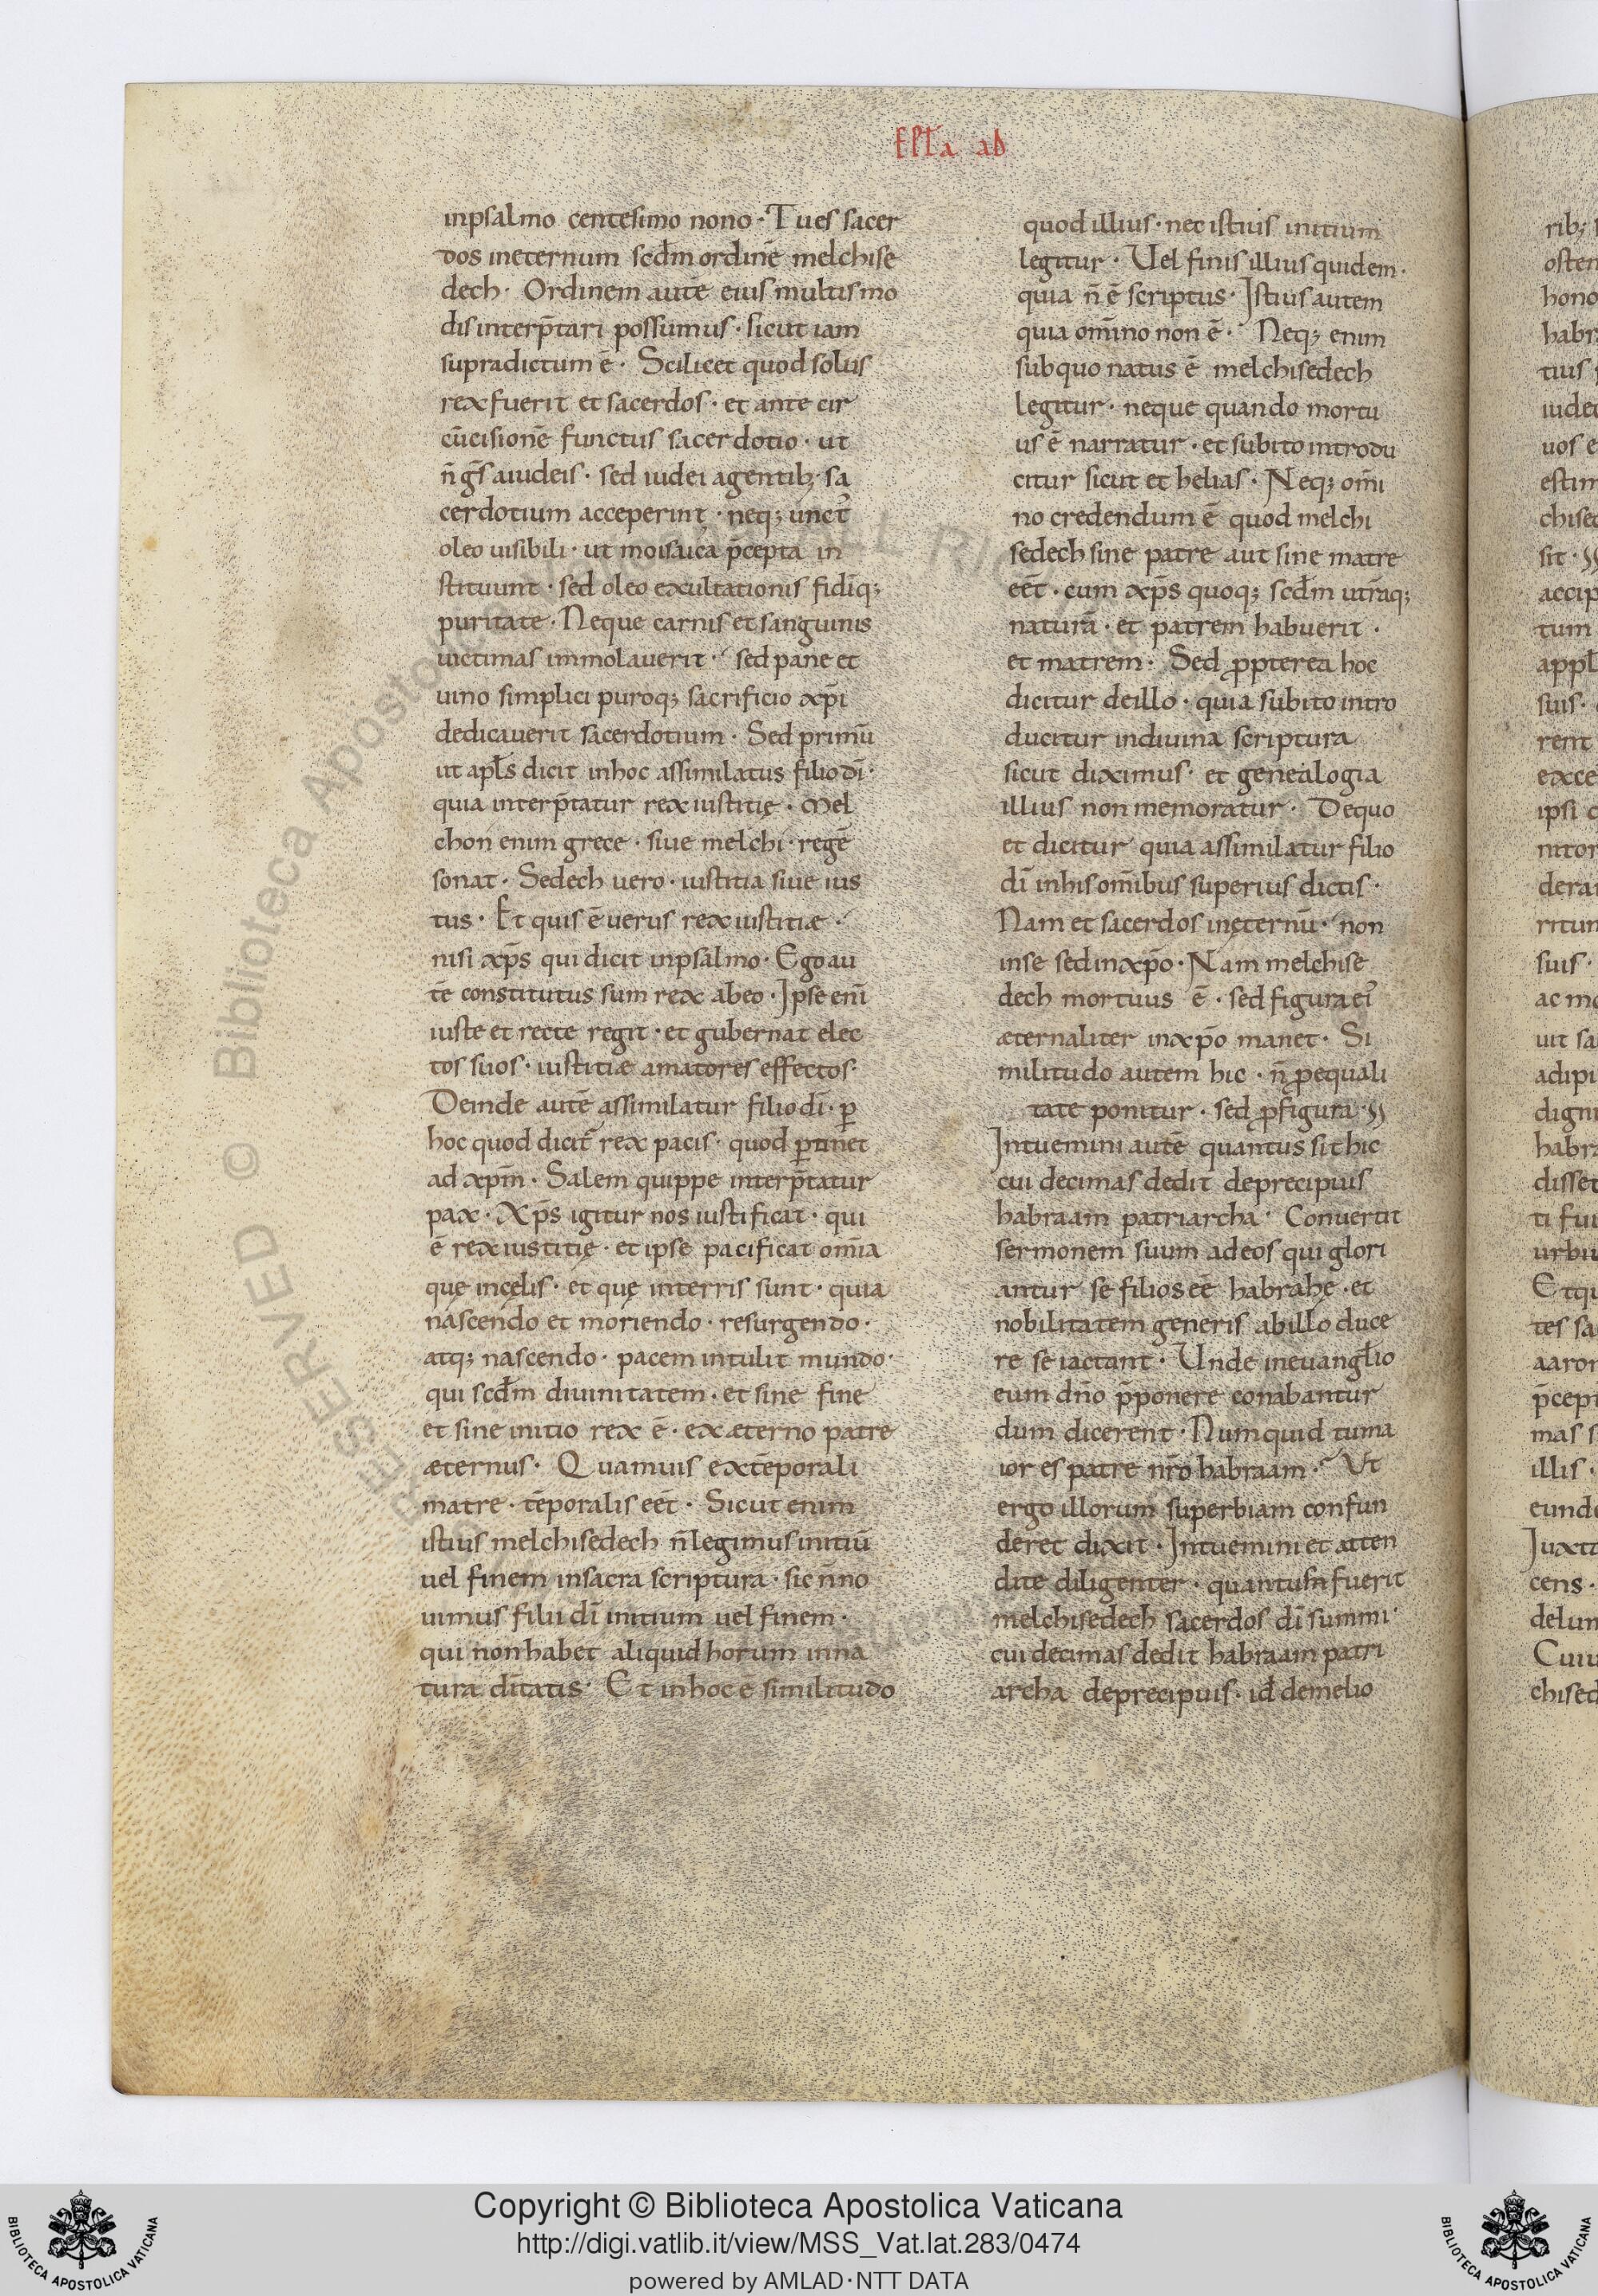 EPLa ad
inpsalmo centesimo nono · Tu es sacer
dos ineternum scdm ordinē melchise
dech · Ordinem autē eius multis mo
dis interp̄tari possumus · sicut iam
supradictum ē · Scilicet quod solus
rex fuerit et sacerdos · et ante cir
cūcisionē functus sacerdotio · ut
n̄ gs̄ a iudeis · sed iudei a gentib; sa
cerdotium acceperint · neq; unct᾿
oleo uisibili · ut moisaica p̄cepta in
stituunt · sed oleo exultationis fidīq;
puritate · Neque carnis et sanguinis
uictimas immolauerit · sed pane et
uino simplici puroq; sacrificio xp̄i
dedicauerit sacerdotium · Sed primū
ut apl̄s dicit inhoc assimilatus filio dī ·
quia interp̄tatur rex iustitię · Mel
chon enim grece · siue melchi · regē
sonat · Sedech uero · iustitia siue ius
tus · Et quis ē uerus rex iustitiæ ·
nisi xp̄s qui dicit inpsalmo · Ego au
tē constitutus sum rex abeo · Ipse enī
iuste et recte regit · et gubernat elec
tos suos · iustitiæ amatores effectos ·
Deinde autē assimilatur filio dī · ꝑ
hoc quod dicit᾿ rex pacis · quod ꝑtinet
ad xp̄m · Salem quippe interp̄tatur
pax · Xp̄s igitur nos iustificat · qui
ē rex iustitię · et ipse pacificat om̄ia
que incęlis · et quę interris sunt · quia
nascendo et moriendo · resurgendo ·
atq; nascendo · pacem intulit mundo ·
qui scdm diuinitatem · et sine fine
et sine initio rex ē · ex æterno patre
æternus · Quamuis extēporali
matre · tēporalis eēt · Sicut enim
istius melchisedech n̄ legimus initiū
uel finem insacra scriptura · sic n̄ no
uimus filii dī initium uel finem ·
qui non habet aliquid horum inna
tura dītatis · Et inhoc ē similitudo
quod illius · nec istius initium
legitur · Uel finis illius quidem ·
quia n̄ ē scriptus · Istius autem
quia om̄ino non ē · Neq; enim
sub quo natus ē melchisedech
legitur · neque quando mortu
us ē narratur · et subito introdu
citur sicut et helias · Neq; om̄i
no credendum ē quod melchi
sedech sine patre aut sine matre
eēt · cum xp̄s quoq; scdm utrāq;
naturā · et patrem habuerit ·
et matrem · Sed ꝓpterea hoc
dicitur deillo · quia subito intro
ducitur indiuina scriptura
sicut diximus · et genealogia
illius non memoratur · Dequo
et dicitur quia assimilatur filio
dī inhis om̄ibus superius dictis ·
Nam et sacerdos inęternū · non
inse sed inxp̄o · Nam melchise
dech mortuus ē · sed figura ei᾿
æternaliter inxp̄o manet · Si
militudo autem hic · n̄ ꝓ equali
tate ponitur · sed ꝓ figura ·
Intuemini autē quantus sit hic
cui decimas dedit deprecipuis
habraam patriarcha · Conuertit
sermonem suum adeos qui glori
antur se filios eē habrahę · et
nobilitatem generis abillo duce
re se iactant · Unde ineuangl̄io
eum dn̄o p̄ponere conabantur
dum dicerent · Numquid tu ma
ior es patre nr̄o habraam · Ut
ergo illorum superbiam confun
deret dixit · Intuemini et atten
dite diligenter · quantus fuerit
melchisedech sacerdos dī summi ·
cui decimas dedit habraam patri
archa deprecipuis · id demelio
rib;
osten
hono
habr
tius
iudec
uos e
estim
chised
sit ·
accip
tum
appl
suis ·
rent
excē
ipsi
nitor
derat
ritur
suis ·
ac mo
uit sa
adipi
digni
habra
disset
ti fui
urbiu
Et qu
tes sa
aaron
p̄cept
mas s
illis ·
eunde
Iuxta
cens ·
delum
Cuiu
chised
RESERVED © Biblioteca Apostolica Vaticana
Copyright © Biblioteca Apostolica Vaticana
http://digi.vatlib.it/view/MSS_Vat.lat.283/0474
powered by AMLAD·NTT DATA
BIBLIOTECA APOSTOLICA VATICANA
BIBLIOTECA APOSTOLICA VATICANA